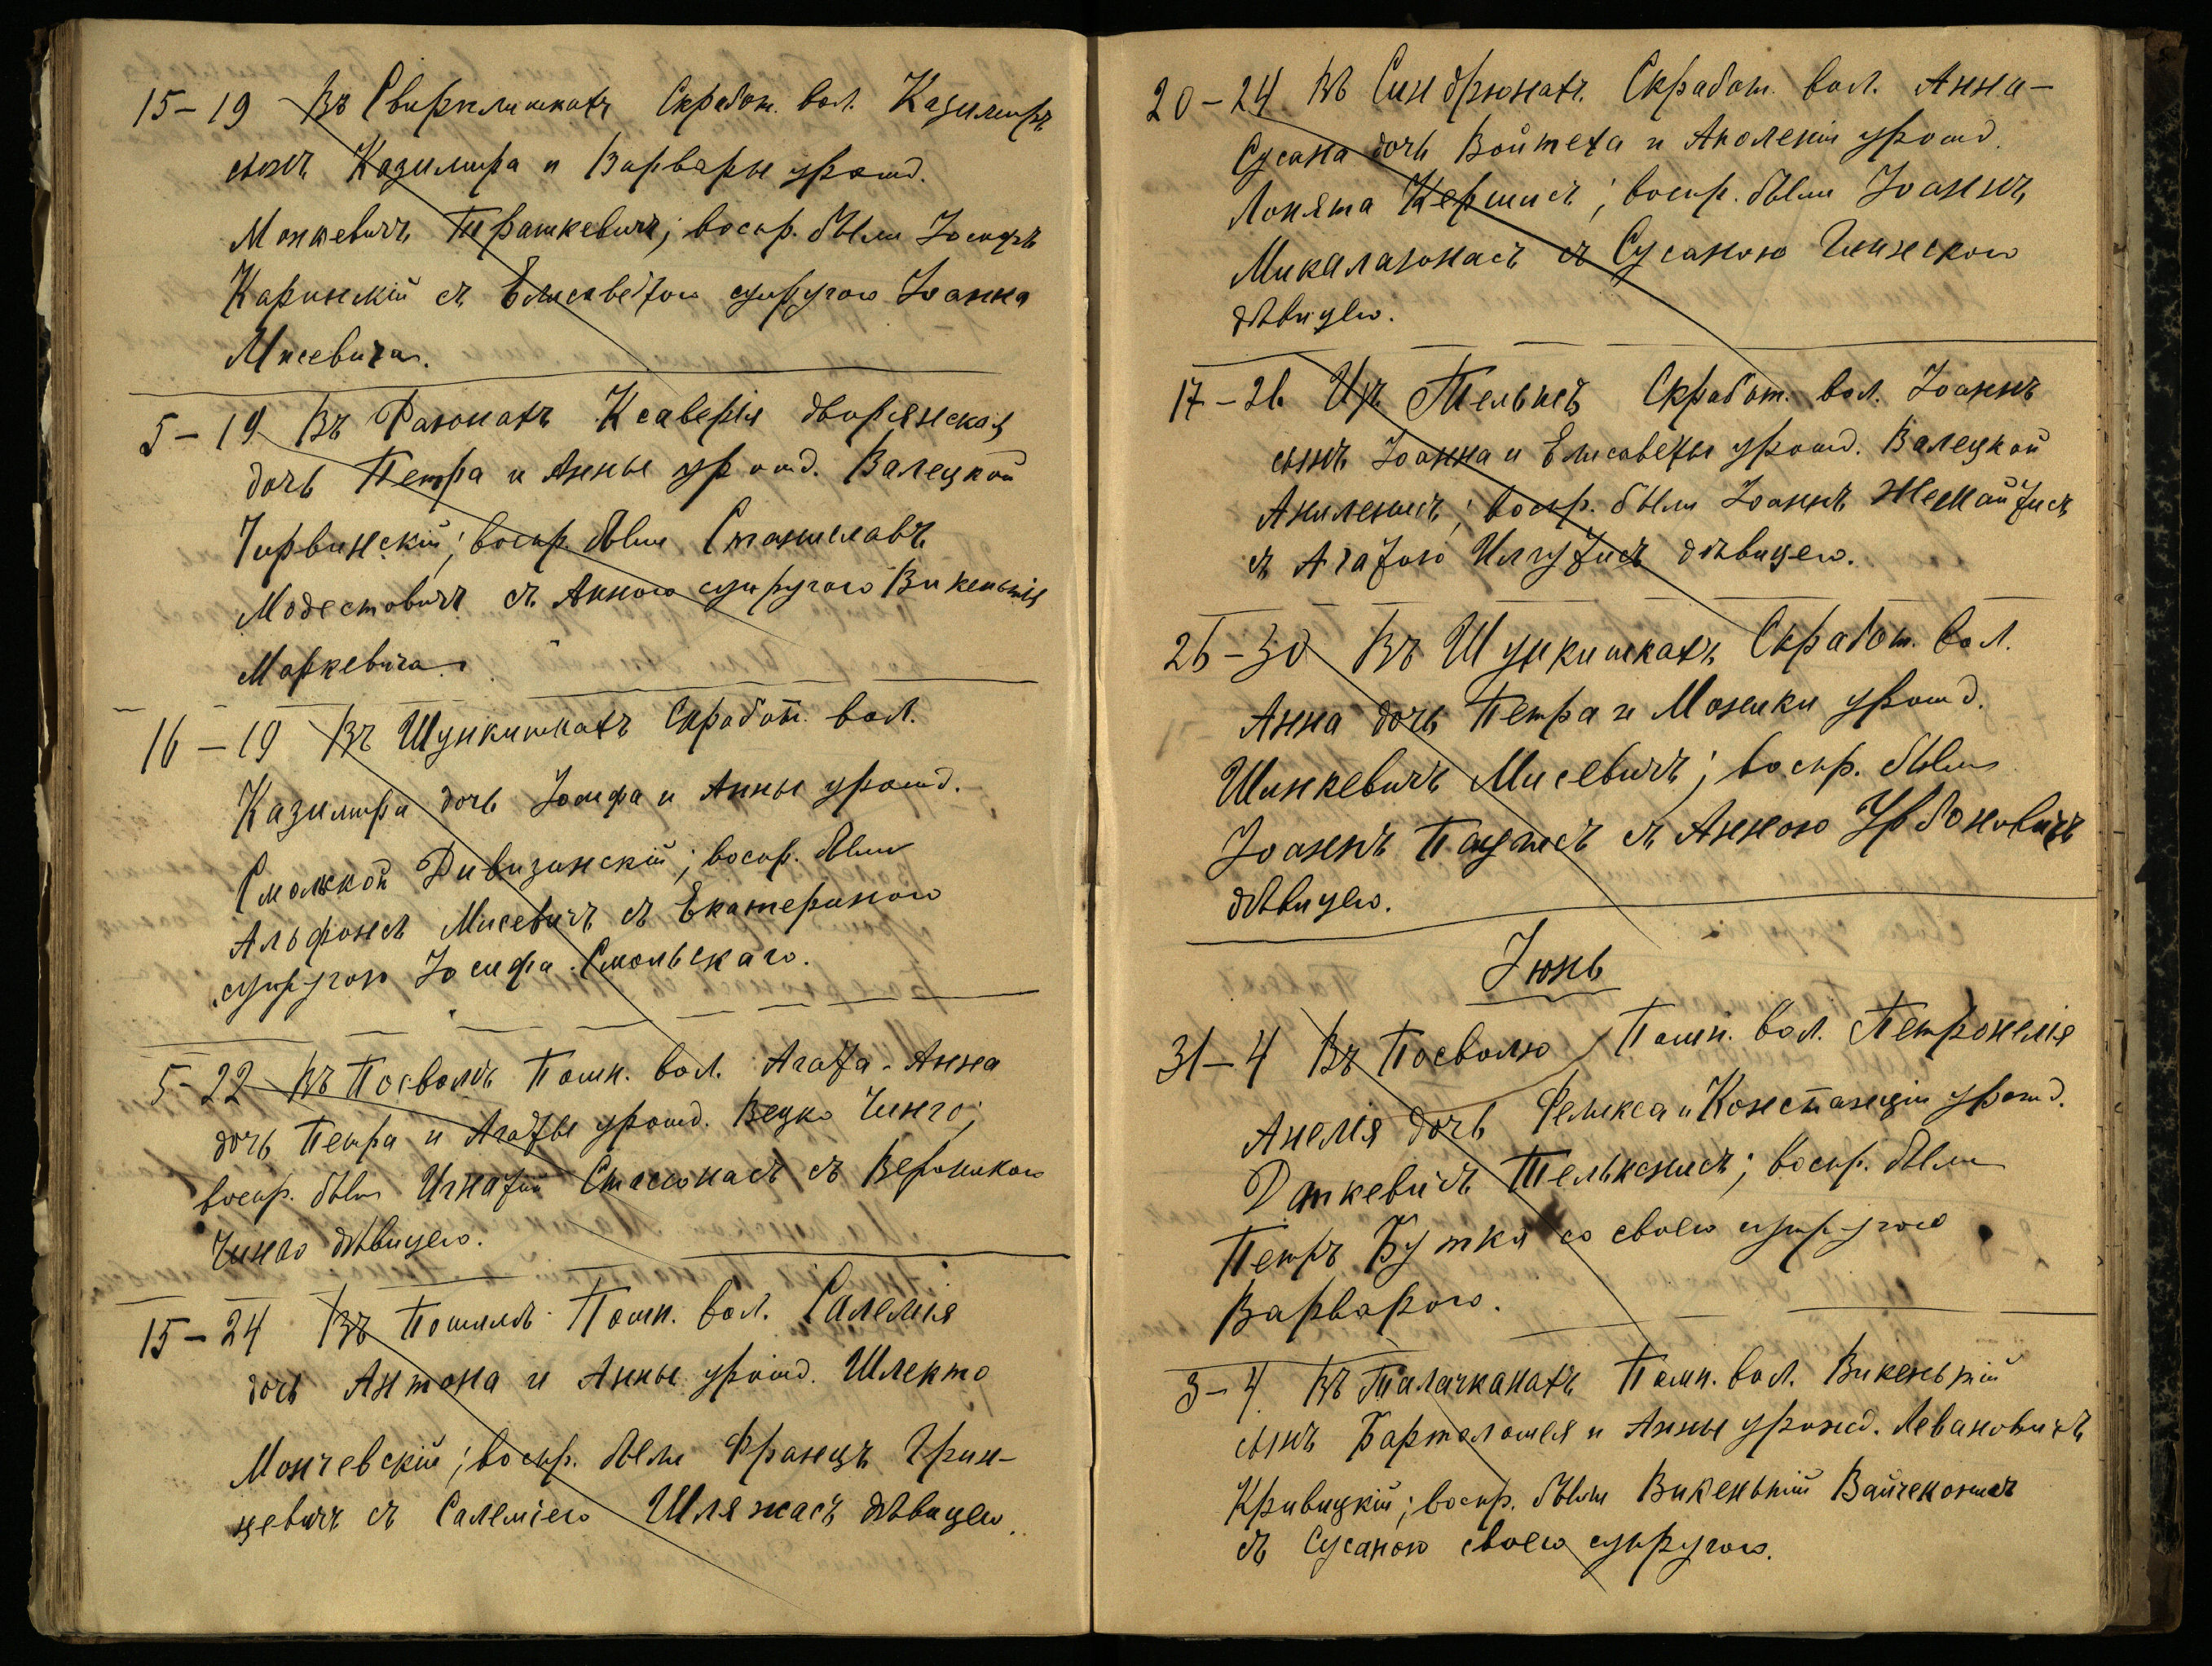 15-19 Въ Свирплишкахъ Скработ. вол. Казимиръ
сынъ Казимира и Варвары урожд.
Монкевичъ Трашкевичъ; воспр. были Іосифъ
Каринскій съ Елисаветою супругою Іоанна
Мисевича.
5-19 Въ Раюнахъ Ксаверія дворянская
дочь Петра и Анны урожд. Валецкой
Чирвинскій; воспр. были Станиславъ
Модестовичъ съ Анною супругою Викентія
Маркевича.
16-19 Въ Шункишкахъ Скработ. вол.
Казимира дочь Іосифа и Анны урожд.
Смольской Дивизинскій; воспр. были
Альфонсъ Мисевичъ съ Екатериною
супругою Іосифа Смольскаго.
5-22 Въ Посволѣ Пошп. вол. Агаѳа-Анна
дочь Петра и Агаѳы урожд. Вецко Чинго;
воспр. были Игнатій Стасюнасъ съ Вероникою
Чинго дѣвицею.
15-24 Въ Пошилѣ Пошп. вол. Салемія
дочь Антона и Анны урожд. Шлекто
Мончевскій; воспр. были Францъ Грин-
цевичъ съ Салеміею Шляжасъ дѣвицею.
20-24 Въ Синдрюнахъ Скработ. вол. Анна-
Сусана дочь Войтеха и Аполеніи урожд.
Лопята Кершисъ; воспр. были Іоаннъ
Микалаюнасъ съ Сусаною Гинскою
дѣвицею.
17-26 Изъ Телькъ Скработ. вол. Іоаннъ
сынъ Іоанна и Елисаветы урожд. Валецкой
Анилёнисъ; воспр. были Іоаннъ Жемайтисъ
съ Агаѳою дѣвицею.
26-30 Въ Шункишкахъ Скработ. вол.
Анна дочь Петра и Моники урожд.
Шинкевичъ Мисевичъ; воспр. были
Іоаннъ съ Анною Урбоновичъ
дѣвицею.
Іюнь
31-4 Въ Посволю Пошп. вол. Петронелія
Анелія дочь Феликса и Констанціи урожд.
Даткевичъ Телькснисъ; воспр. были
Петръ Бутка со своею супругою
Варварою.
3-4 Въ Талачканахъ Пошп. вол. Викентій
сынъ Бартоломея и Анны урожд. Левановичъ
Кривицкій; воспр. были Викентій Вайчеконисъ
съ Сусаною своею супругою.